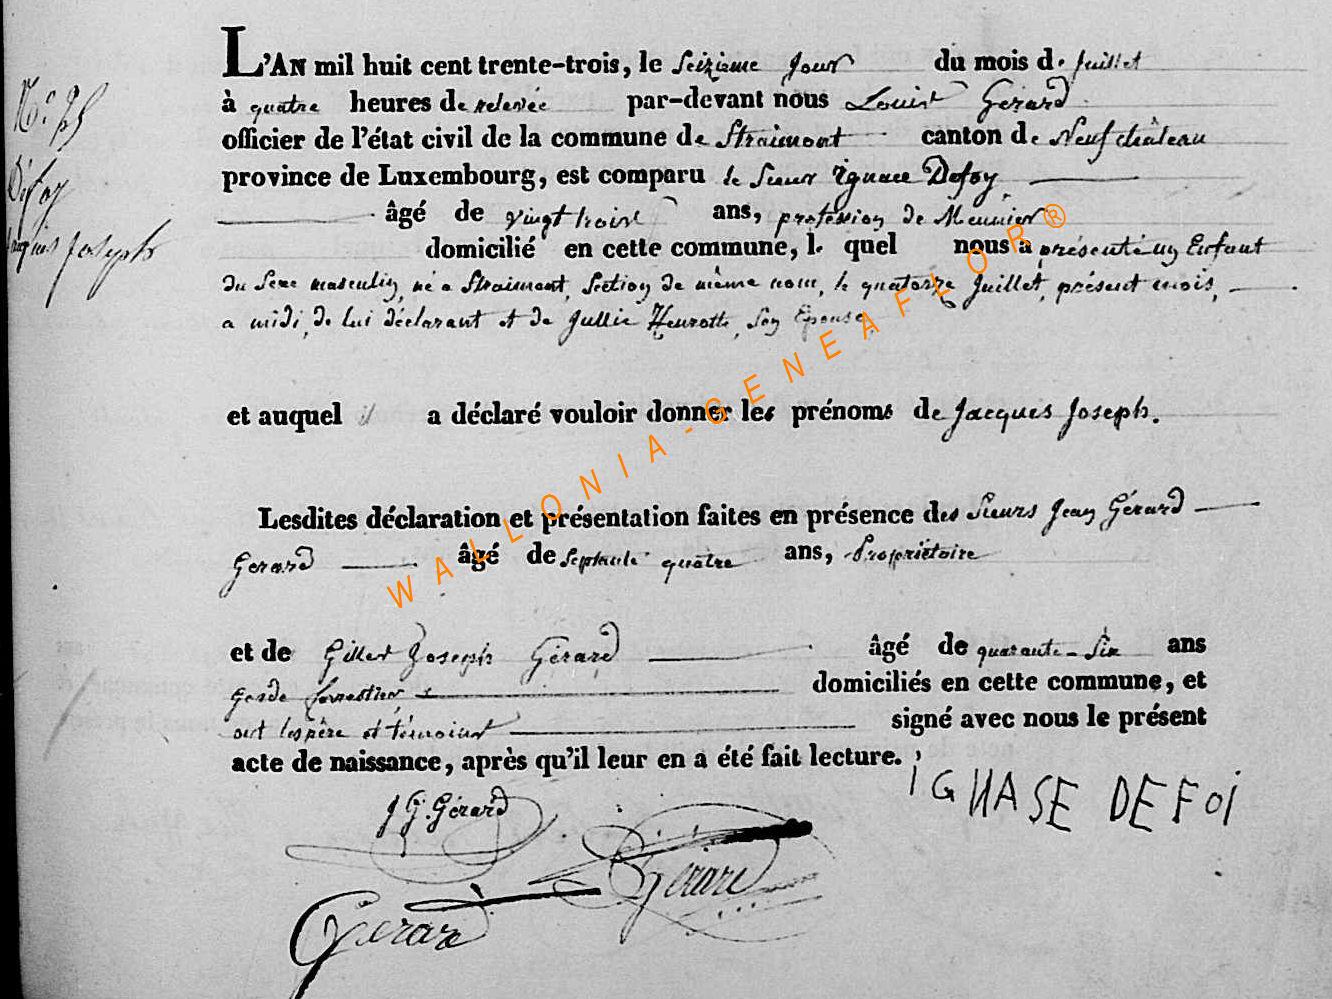 L'AN mil huit cent trente-trois, le Seizieme Jour du mois de Juillet
à quatre heures de relevée par-devant nous Louis Gérard
officier de l'état civil de la commune de Straimont canton de Neufchâteau
province de Luxembourg, est comparu le Sieur Ignace Defoy
âgé de vingt trois ans, profession de Meunier
domicilié en cette commune, lequel nous a présenté un Enfant
du Sexe masculin, né a Straimont, Section de même nom, le quatorze Juillet, présent mois,
a midi, de lui déclarant et de Jullie Henrotte, Son Epouse,
et auquel il a déclaré vouloir donner les prénoms de Jacques Joseph.
Lesdites déclaration et présentation faites en présence des Sieurs Jean Gérard
Gerard âgé de Septante quatre ans, Propriétaire
et de Gilles Joseph Gérard âgé de quarante-Six ans
garde forrestier domiciliés en cette commune, et
ont les père et témoins signé avec nous le présent
acte de naissance, après qu'il leur en a été fait lecture.
IGNASE DEFOI
J G. Gérard
Gérard
Gerard
N°
Defoy
Jacques Joseph
WALLONIA-GENEAFLOR®